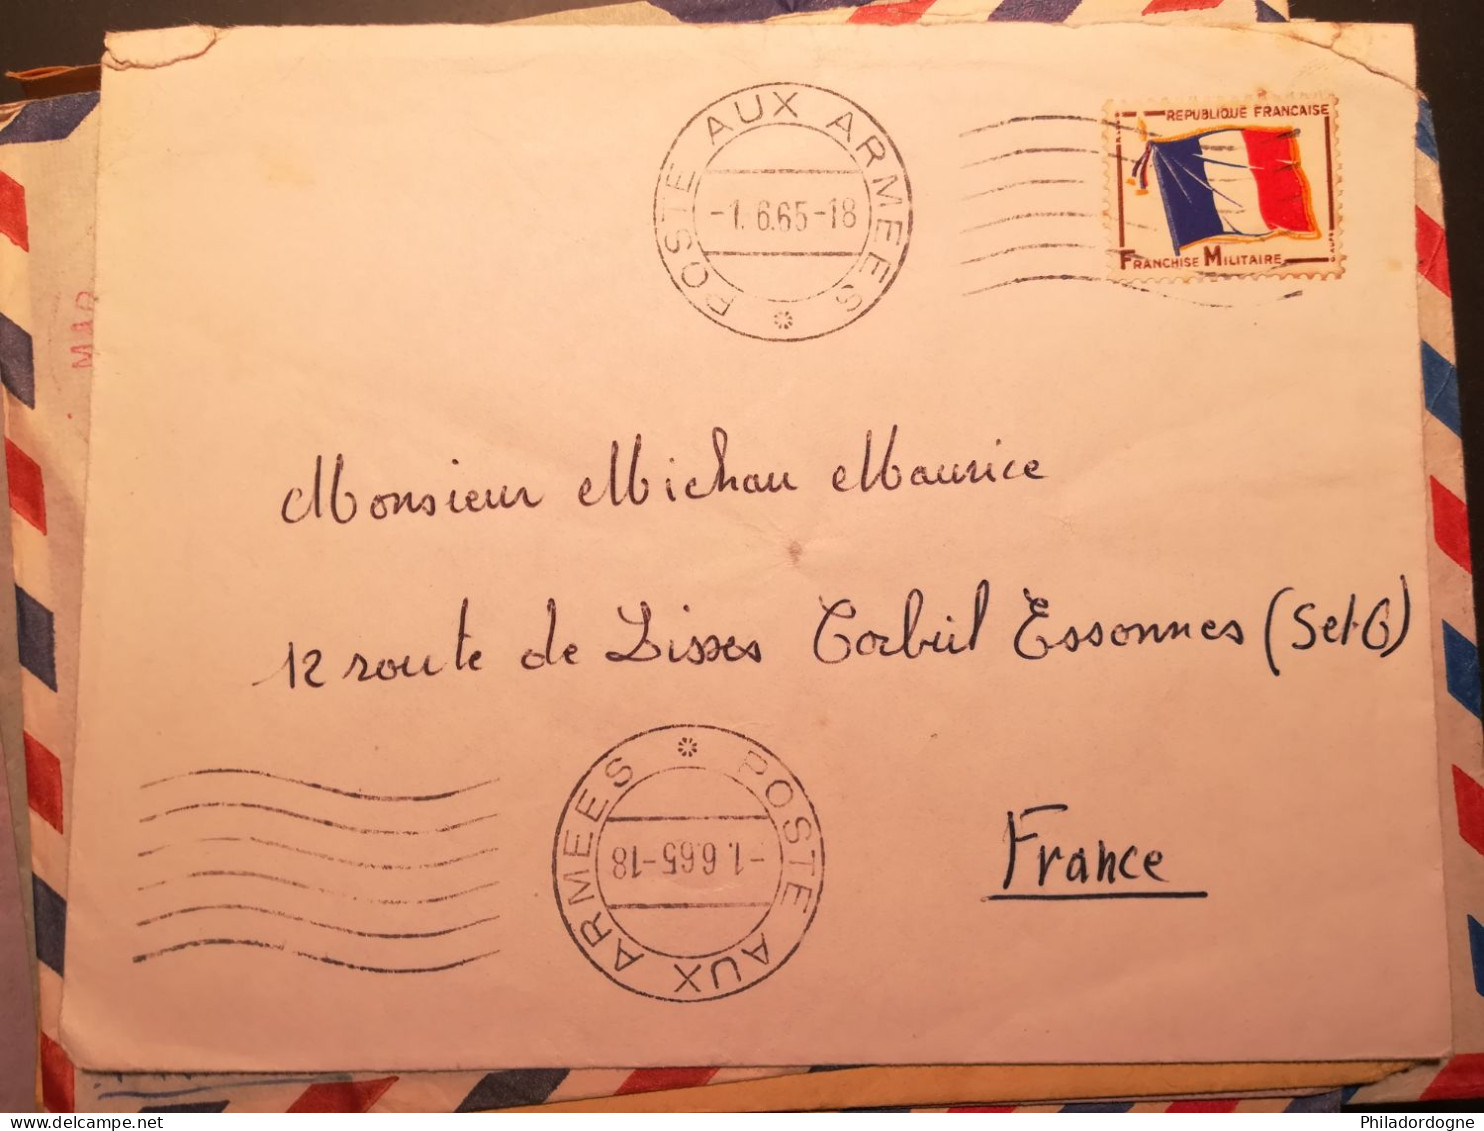 POSTE AUX ARMEES
-1. 6.65-18
REPUBLIQUE FRANCAISE
FRANCHISE MILITAIRE
MAR
Monsieur Michau Maurice
12 route de Lisses Corbeil Essonnes (Set-O)
POSTE AUX ARMEES
-1. 6.65-18
France
Philadordogne